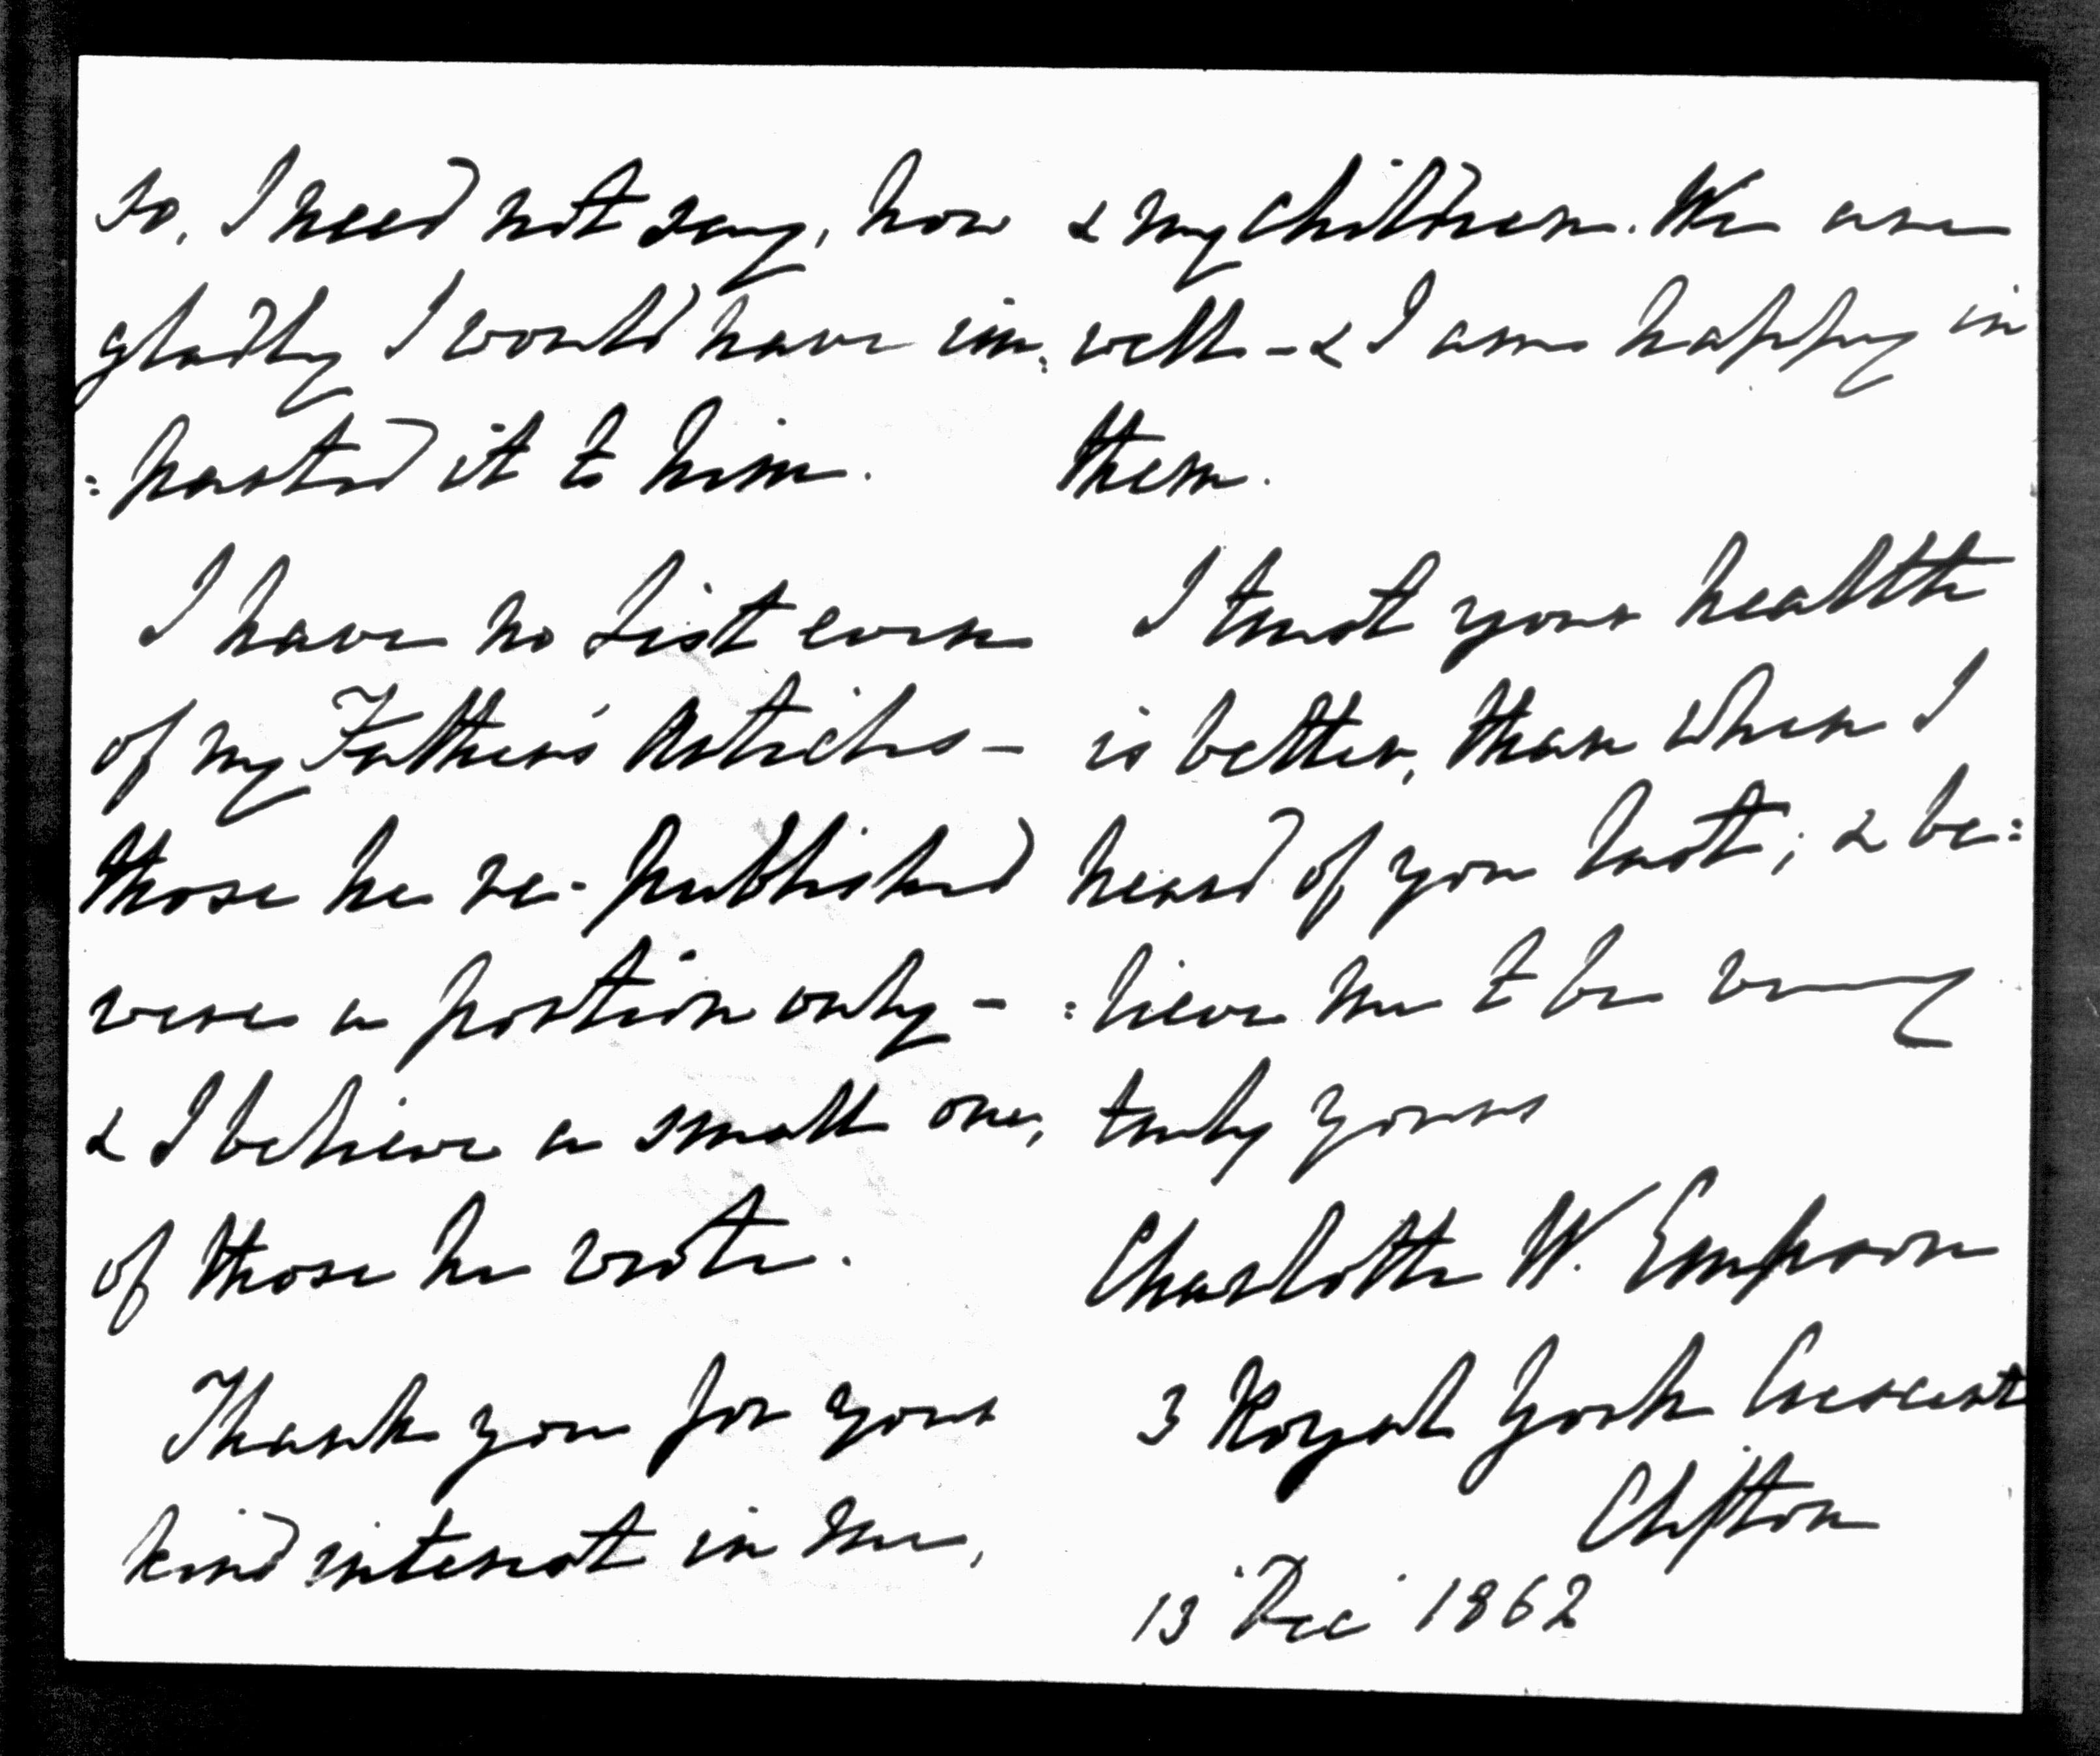 so, I need not say, how
gladly I would have im:
:parted it to him.
I have no List even
of my Father's Articles -
those he re-published
were a portion only -
& I believe a small one,
of those he wrote.
Thank you for your
kind interest in me,
& my children. We are
well - & I am happy in
them.
I trust your health
is better, than when I
heard of you last; & be:
:lieve me to be very
truly yours
Charlotte W. Empson
3 Royal York Crescent
Clifton
13 Dec 1862